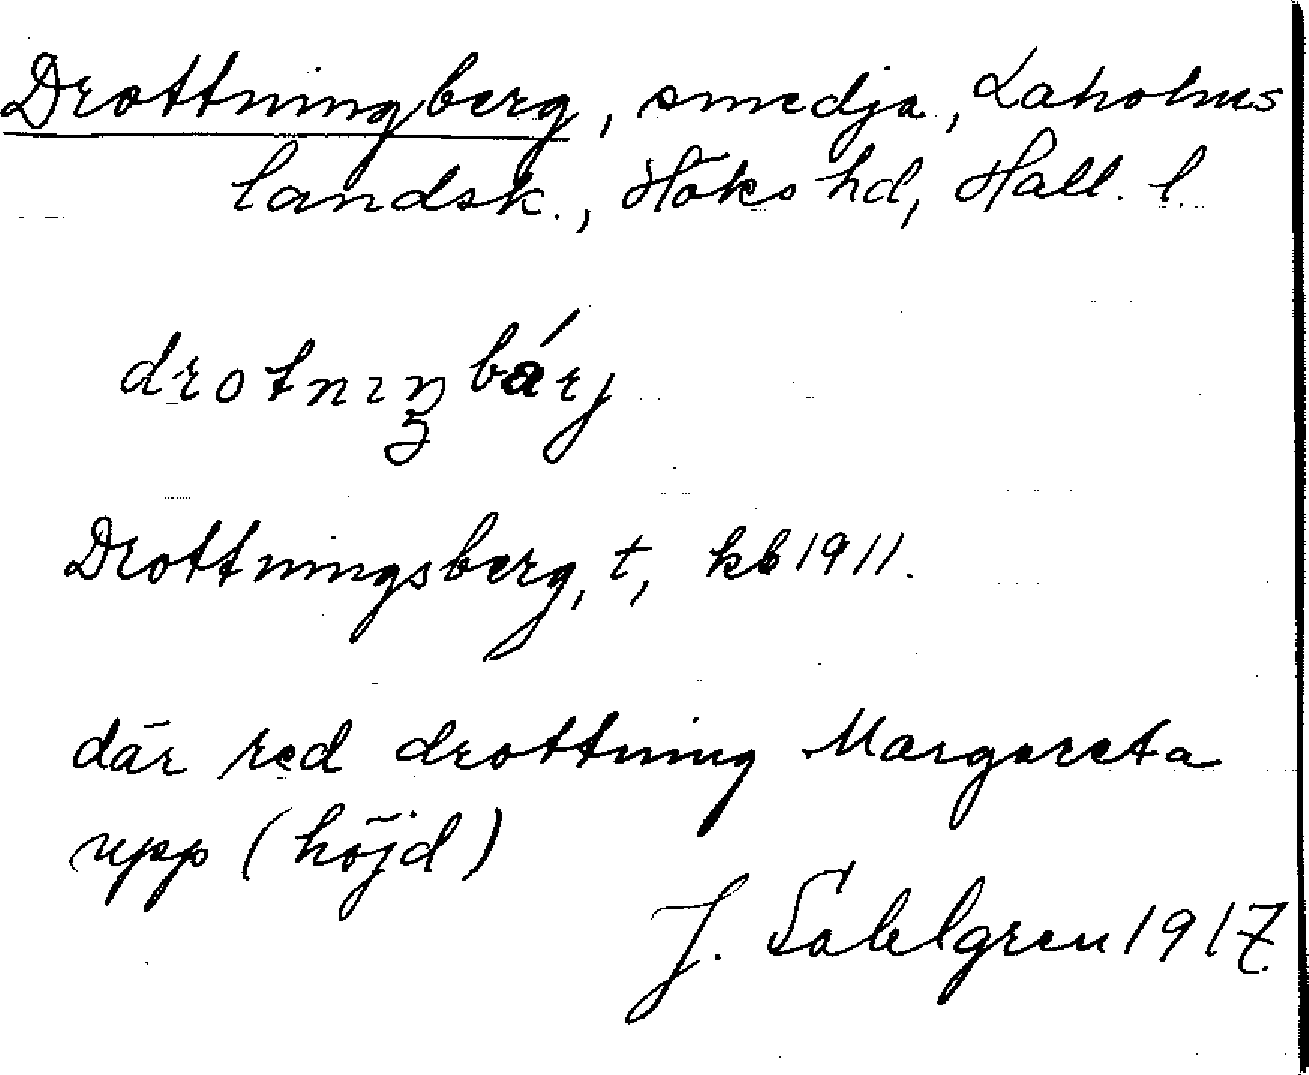 Drottningberg, smedja, Laholms
landsk., Höks hd, Hall. l.
drotnıŋbárj
Drottningsberg, t, kb 1911.
där red drottning Margareta
upp (höjd)
J. Sahlgren 1917.